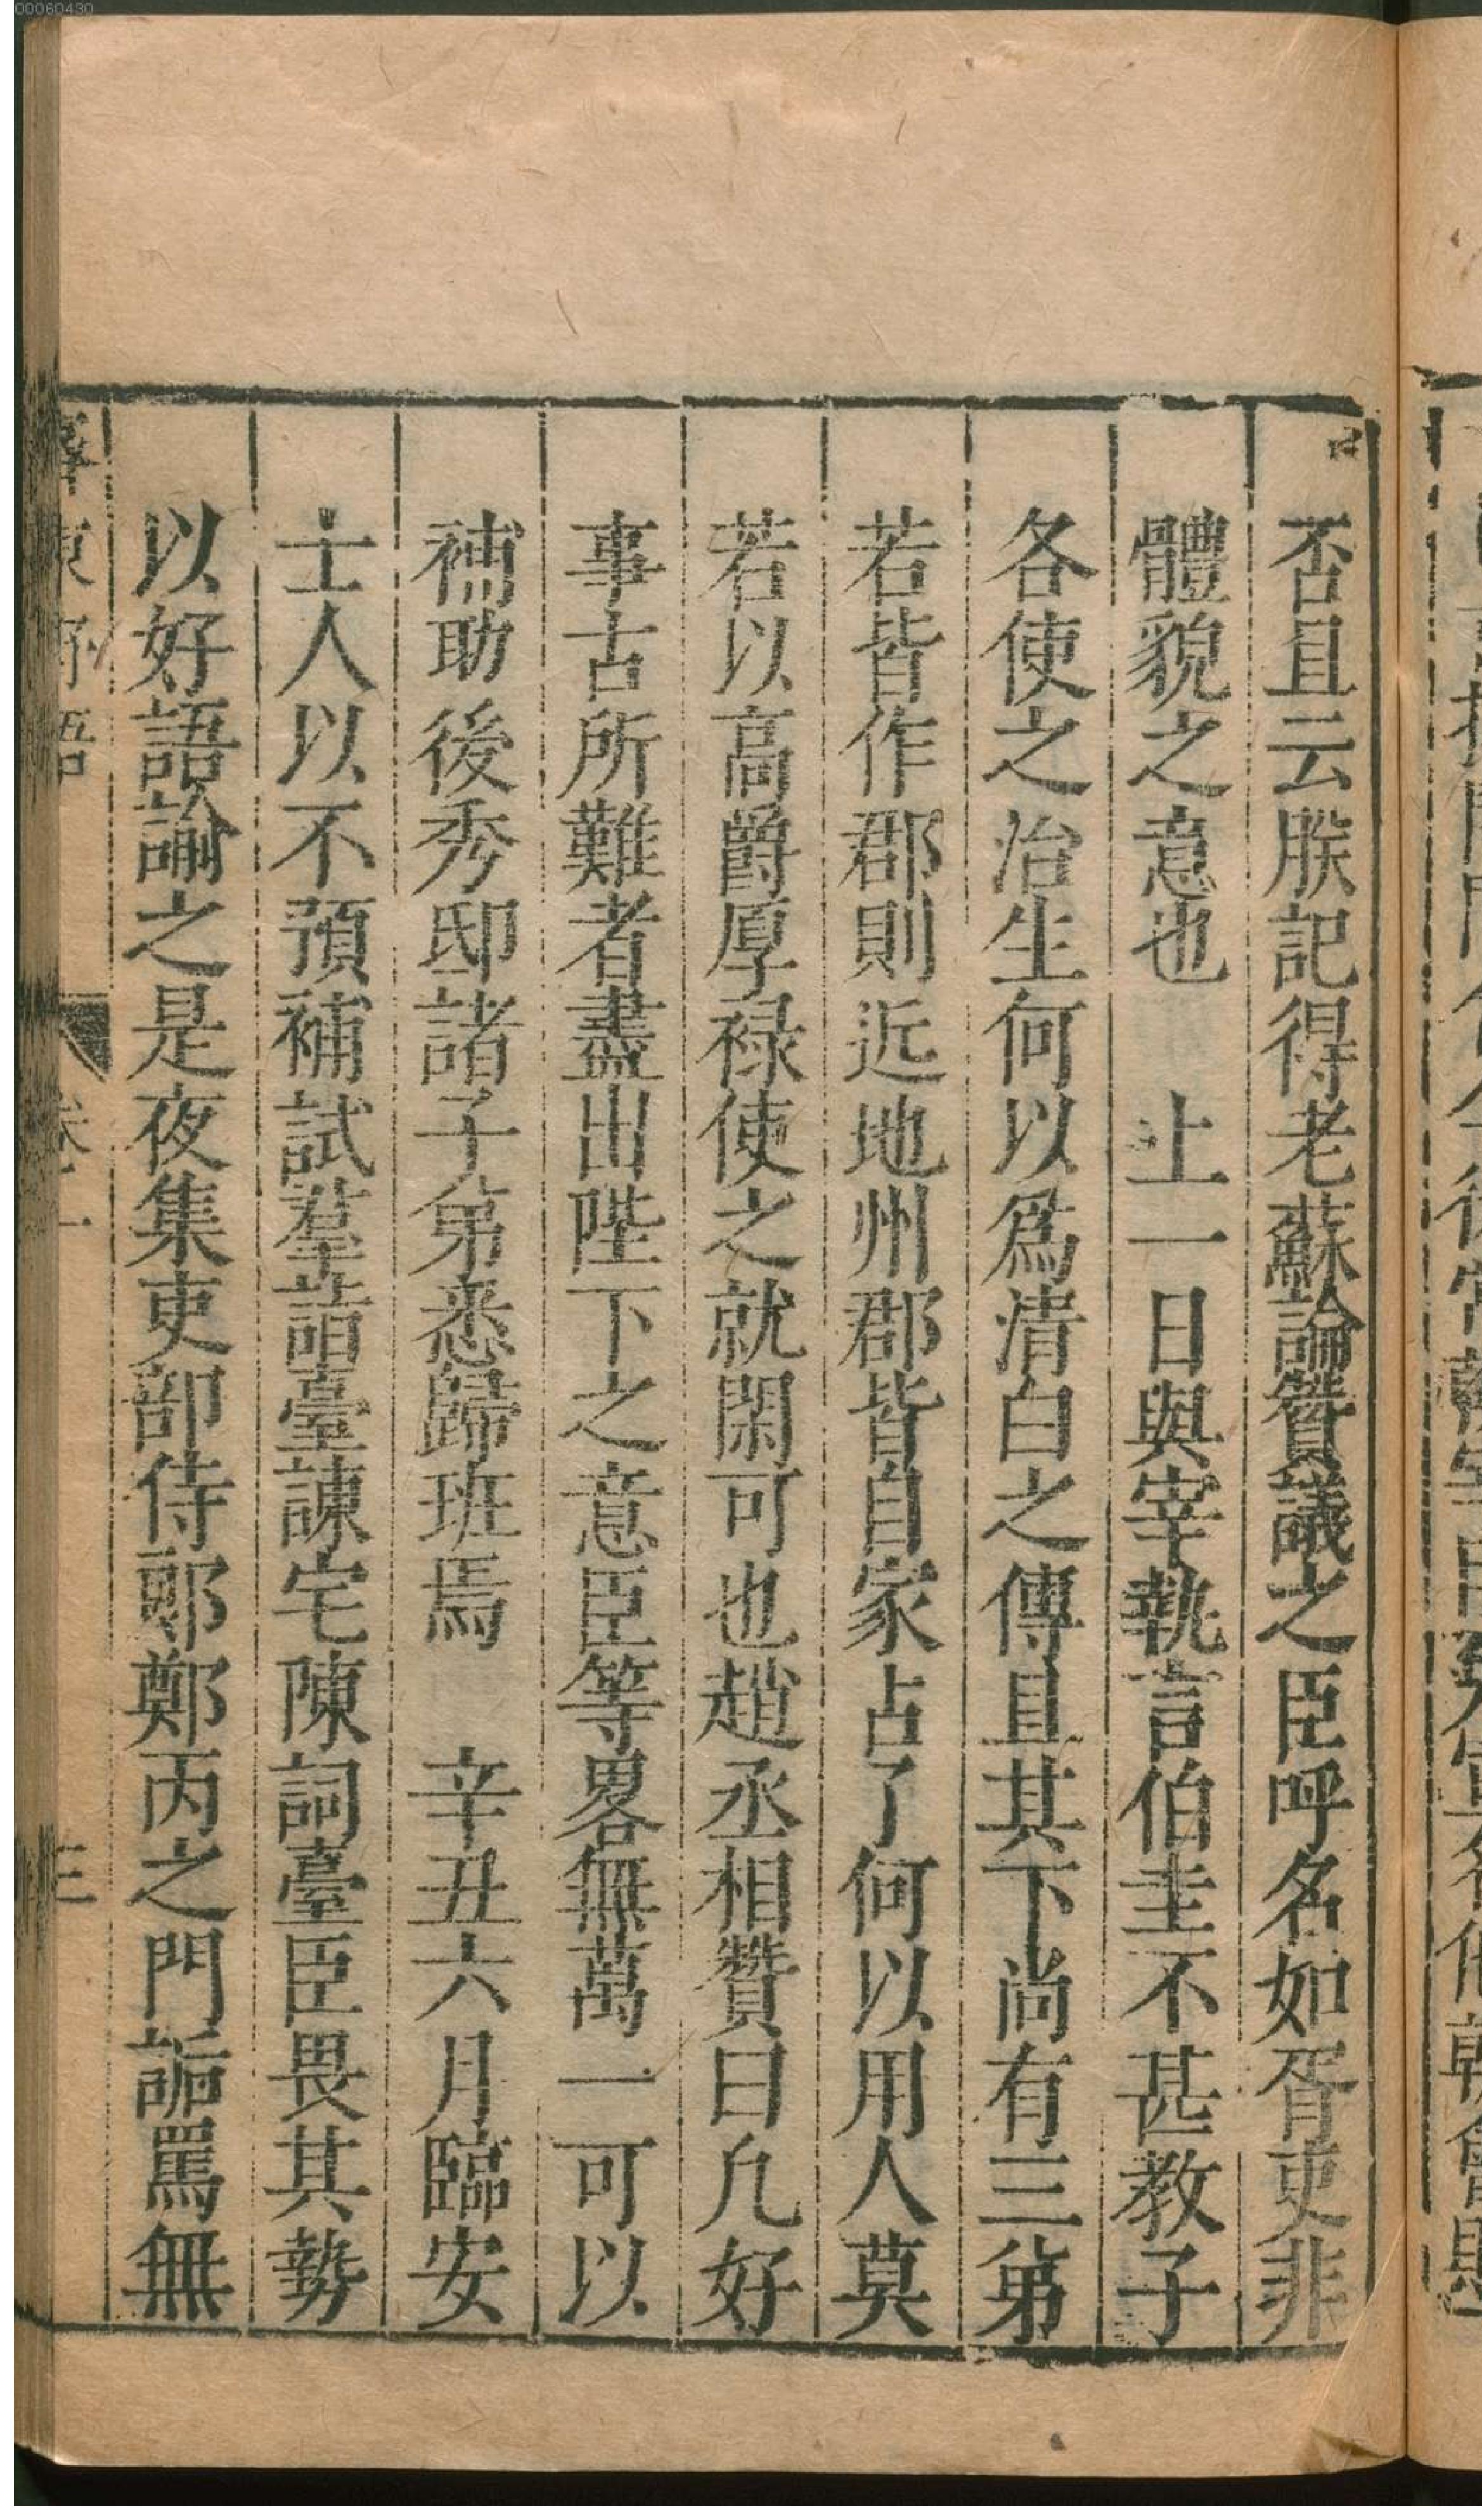 否且云朕記得老蘇論贊議之臣呼名如胥吏非
體貌之意也　上一日與宰執言伯圭不甚教子
各使之治生何以爲清白之傳且其下尚有三弟
若皆作郡則近地州郡皆自家占了何以用人莫
若以高爵厚禄使之就閑可也趙丞相贊曰凡好
事古所難者盡出陛下之意臣等畧無萬一可以
補助後秀邸諸子弟悉歸班焉　辛丑六月臨安
士人以不預補試羣詣臺諫宅陳詞臺臣畏其勢
以好語諭之是夜集吏部侍郎鄭丙之門詬罵無
00060430